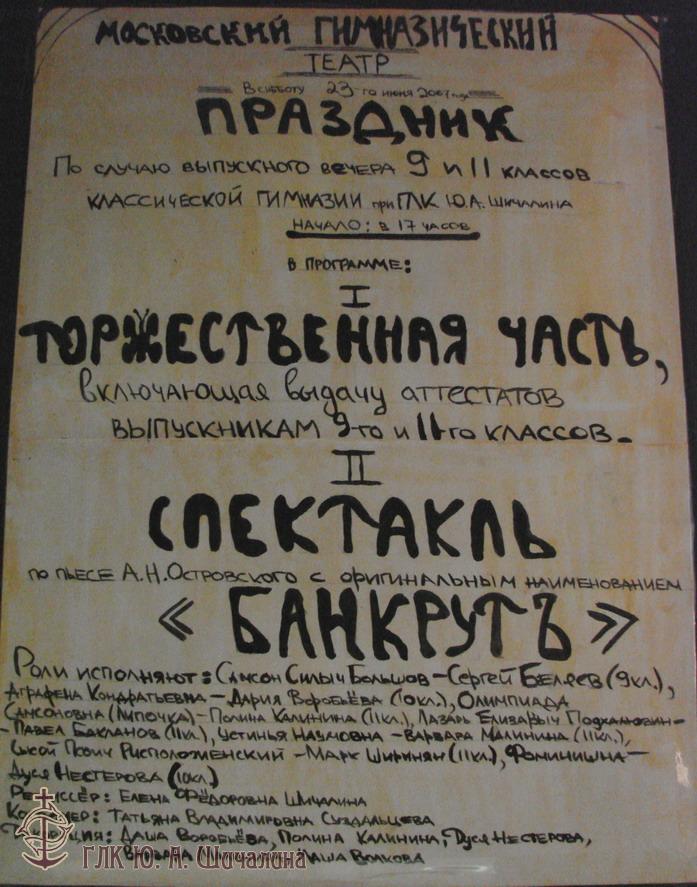 МОСКОВСКИЙ ГИМНАЗИЧЕСКИЙ
ТЕАТР
В субботу 23-го июня 2007 года
ПРАЗДНИК
По случаю выпускного вечера 9 и 11 классов
классической гимназии при ГЛК Ю.А. Шичалина
НАЧАЛО: в 17 часов
в программе:
I
ТОРЖЕСТВЕННАЯ ЧАСТЬ,
включающая выдачу аттестатов
выпускникам 9-го и 11-го классов.
II
СПЕКТАКЛЬ
по пьесе А.Н.Островского с оригинальным наименованием
«БАНКРУТЪ»
Роли исполняют: Самсон Силыч Большов - Сергей Беляев (9кл.),
Аграфена Кондратьевна - Дария Воробьёва (10кл.), Олимпиада
Самсоновна (Липочка) - Полина Калинина (11кл.), Лазарь Елизарыч Подхалюзин-
-Павел Бакланов (11кл.), Устинья Наумовна - Варвара Малинина (11кл.),
Сысой Псоич Рисположенский - Марк Ширинян (11кл.), Фоминишна -
Дуся Нестерова (10кл.)
Режиссёр: Елена Фёдоровна Шичалина
Татьяна Владимировна Суздальцева
Даша Воробьёва, Полина Калинина, Дуся Нестерова,
Варвара Малинина, Даша Волкова
ГЛК Ю. А. Шичалина